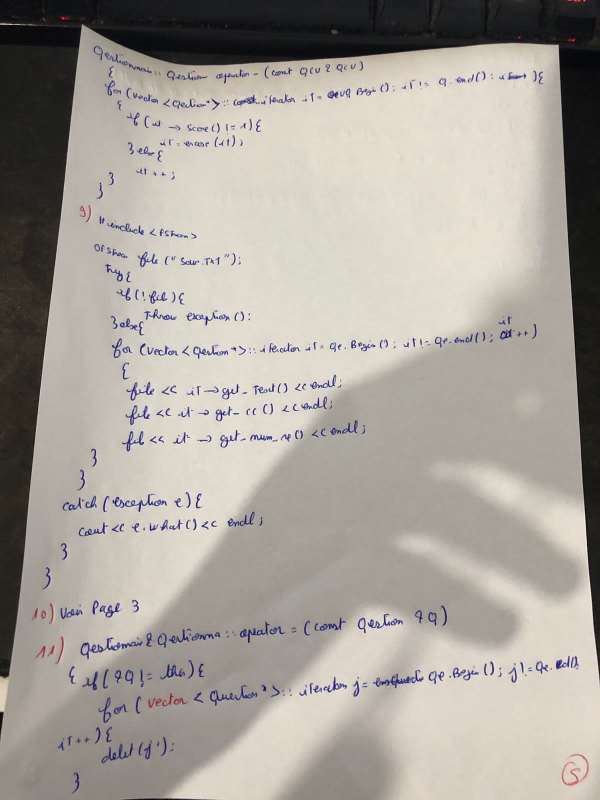 Gestionnaire:: Gestion operator-(const QCU & QCU)
{
for(vector<Question*>:: const iterator iT = Begin(); iT != Q.end(): ){
{
if(it → Score() != 1){
iT = erase(iT);
} else{
it++;
}
}
9) #include <fstream>
Ofstream file("Sour.TxT");
Try{
if(!file){
Throw exception():
} else{
for(vector<Question*>:: iterator iT = Qe.Begin(); iT != Qe.end(); iT++)
{
file << iT → get_Text() << endl;
file << it → get_cc() << endl;
file << it → get_num_re() << endl;
}
}
catch(exception e){
cout << e.what() << endl;
}
}
10) Voir Page 3
11) Gestionnair& Gestionna:: operator = (const Gestion & Q)
{ if(&Q != this){
for(vector<Question*>:: iterator j = Qe.Begin(); j != Qe.end();
iT++){
delet(j*);
}
5